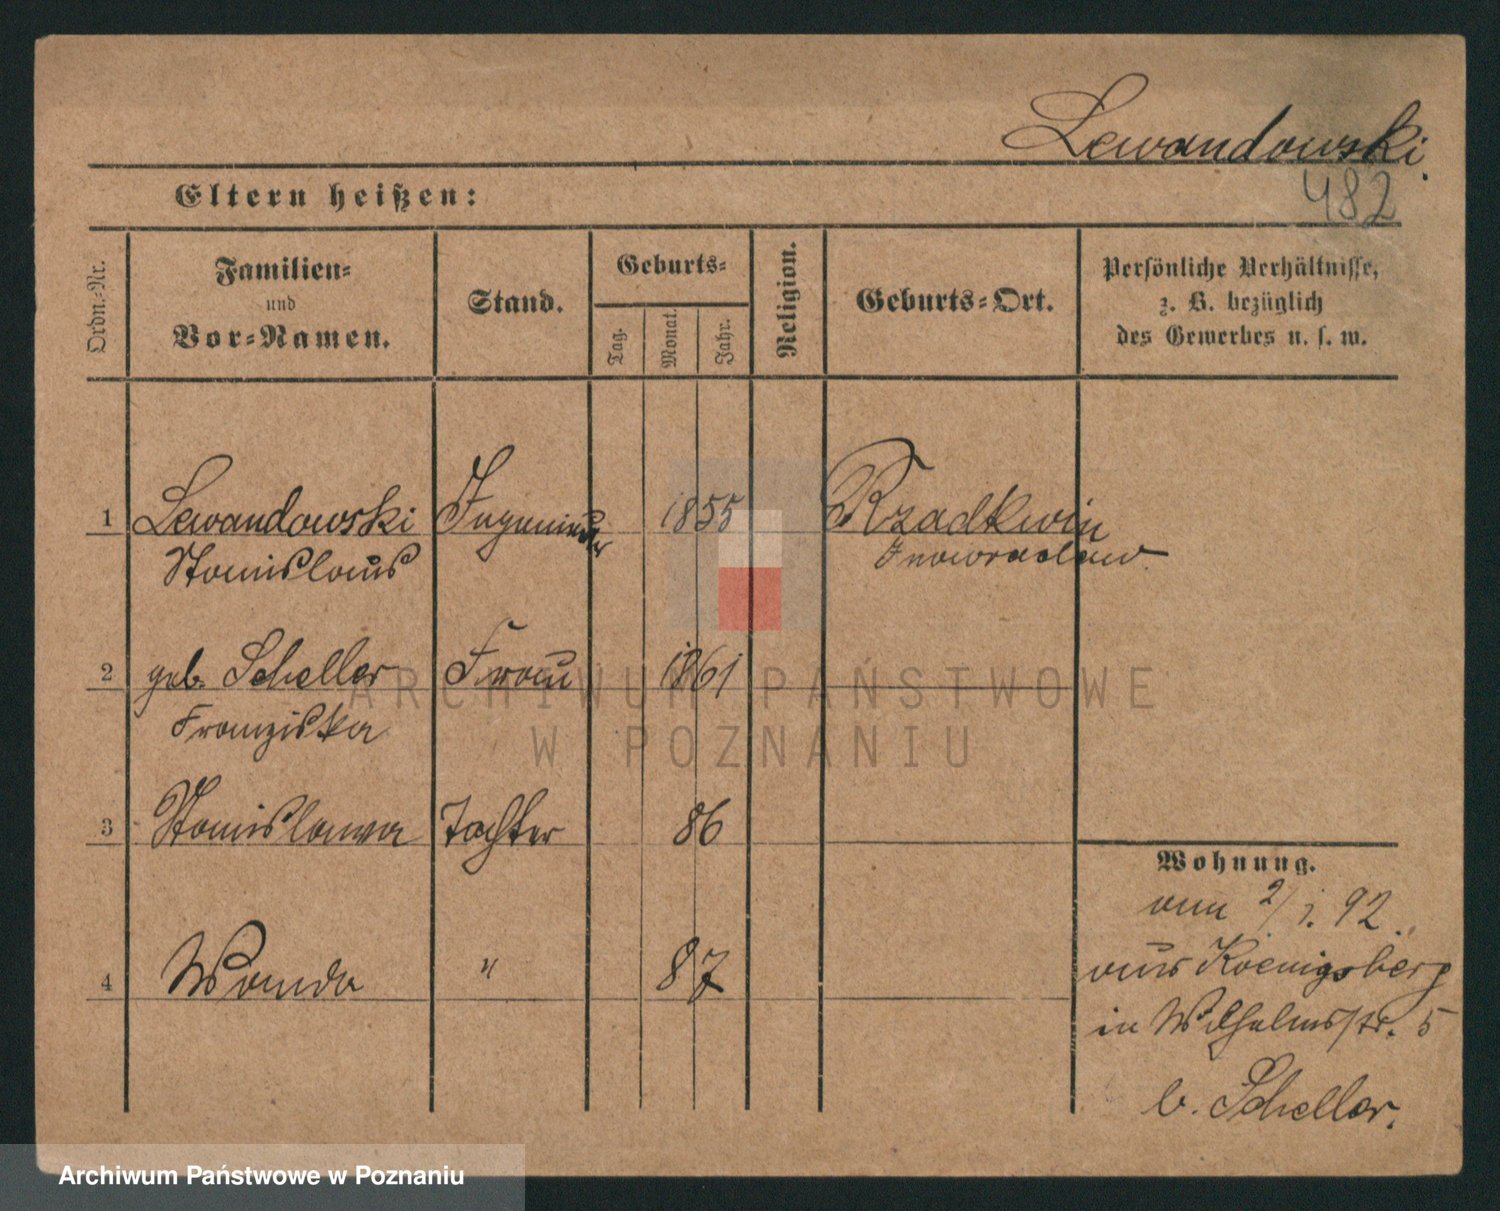 Lewandowski.
482
Eltern heißen:
Ordn.=Nr.
Familien=
und
Vor=Namen.
Stand.
Geburts=
Tag.
Monat.
Jahr.
Religion.
Geburts=Ort.
Persönliche Verhältnisse,
z. B. bezüglich
des Gewerbes u. s. w.
1 Lewandowski Ingenieur 1855 Rzadkwin
Stanislaus Inowraclaw
2 geb. Scheller Frau 1861
Franziska
3 Stanislawa Tochter 86
4 Wanda " 87
Wohnung.
vom 2/1. 92.
aus Koenigsberg
in Wilhelmstr. 5
b. Scheller.
ARCHIWUM PAŃSTWOWE
W POZNANIU
Archiwum Państwowe w Poznaniu